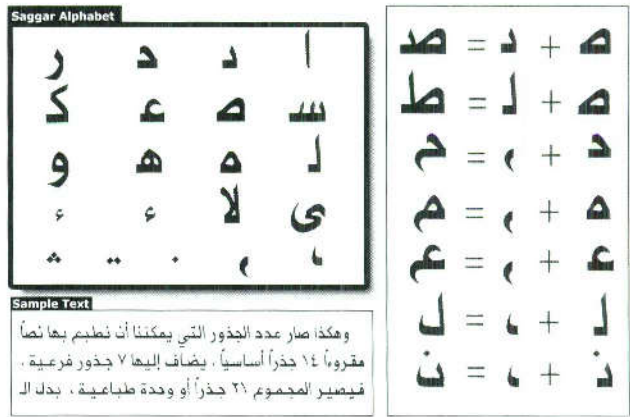 Saggar Alphabet
ا ٮـ حـ ر
سـ صـ عـ كـ
لـ مـ هـ و
ى لا ء ء
Sample Text
وهكذا صار عدد الجذور التي يمكننا أن نطبع بها نصاً
مقروءاً ١٤ جذراً أساسياً ، يضاف إليها ٧ جذور فرعية ،
فيصير المجموع ٢١ جذراً أو وحدة طباعية ، بدل الـ
صـ + ٮـ = صـ
صـ + لـ = ط
حـ + = ح
مـ + = م
عـ + = ع
لـ + = ل
نـ + = ن